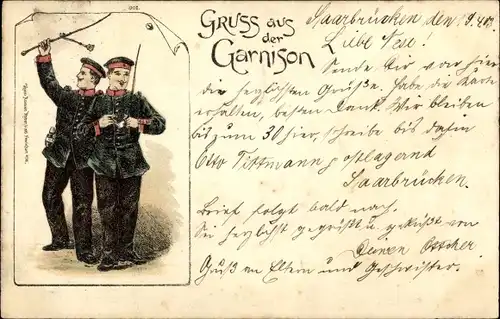 1202.
Gruss aus
der
Garnison
Saarbrücken, den 19.4.01.
Liebe Rese!
Sende Dir von hier
die herzlichsten Grüße. Habe die Karte
erhalten, besten Dank. Wir bleiben
bis zum 30 hier, schreibe bis dahin
Otto Tittmann postlagernd
Saarbrücken.
Brief folgt bald nach.
Sei herzlichst gegrüßt u. geküßt von
Deinen
Gruß an Eltern und Geschwister.